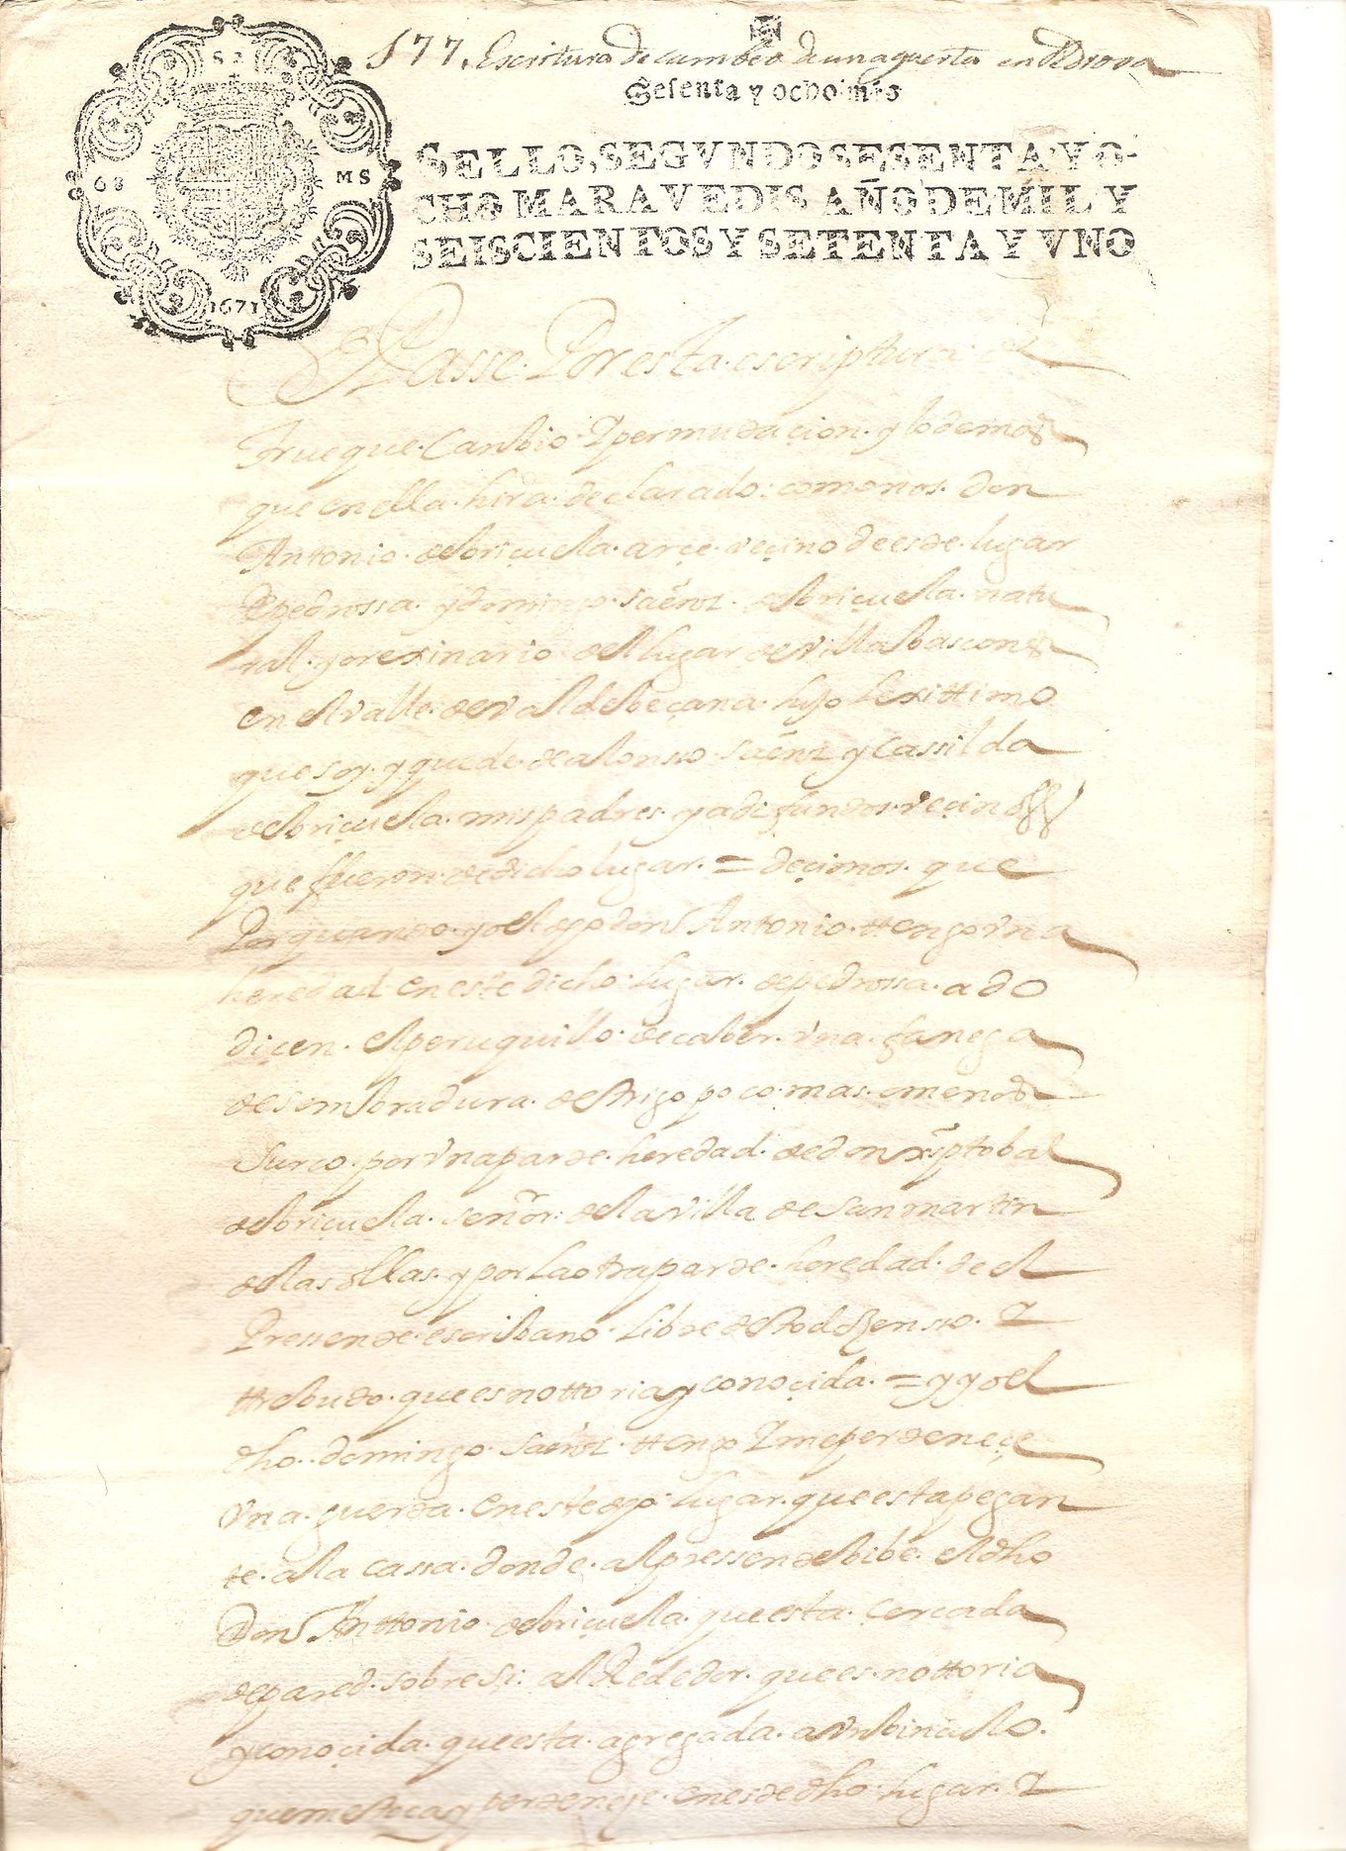 177. Escritura de cambeo de una guerta en Pedrosa
Sesenta y ocho mrs
SELLO, SEGVNDO SESENTA Y O-
CHO MARAVEDIS AÑO DE MIL Y
SEISCIENTOS Y SETENTA Y VNO
S 2
68 MS
1671
Passe. Por esta. escriptura. de
trueque. Canbio. Y permudacion. y lo demas
que en ella. hira. declarado: como nos. don
Antonio. de briçuela. arçe. veçino de esde. lugar
de pedrossa. y domingo. saenz. de briçuela. natu
ral. y orexinario del lugar de villabascones
en el valle. de valdebeçana. hijo Lexittimo
que soy. y quede. de alonsso. saenz y Cassilda
de briçuela. mis padres. ya difuntos. veçinos
que fueron. de dicho lugar. = deçimos. que
Por quando. yo el dho don Antonio. ttengo vna
heredad en este dicho. lugar. de pedrossa. ado
dicen. el peruquillo. de caber. vna. fanega
de sembradura. de trigo poco. mas. o menos
Surco. por vna parde. heredad. de don xptobal
de briçuela. señor. de la villa de san martin
de las ollas. y por la otra parde. heredad. de el
Pressende. escribano. Libre de todo Zensso. Y
ttrebudo. que es nottoria y conoçida. = y yo el
dho. domingo. saenz. ttengo Y me perdeneçe
vna. guerda. en este dho. lugar. que esta pegan
te. a la cassa. donde. al pressende bibe. el dho
Don Anttonio. de briçuela. que esta. cercada
de pared. sobre si. al Rededor. que es. nottoria
y conoçida. que esta. agregada. a vn binculo.
que me toca y perdeneçe. en esde dho. lugar. Y